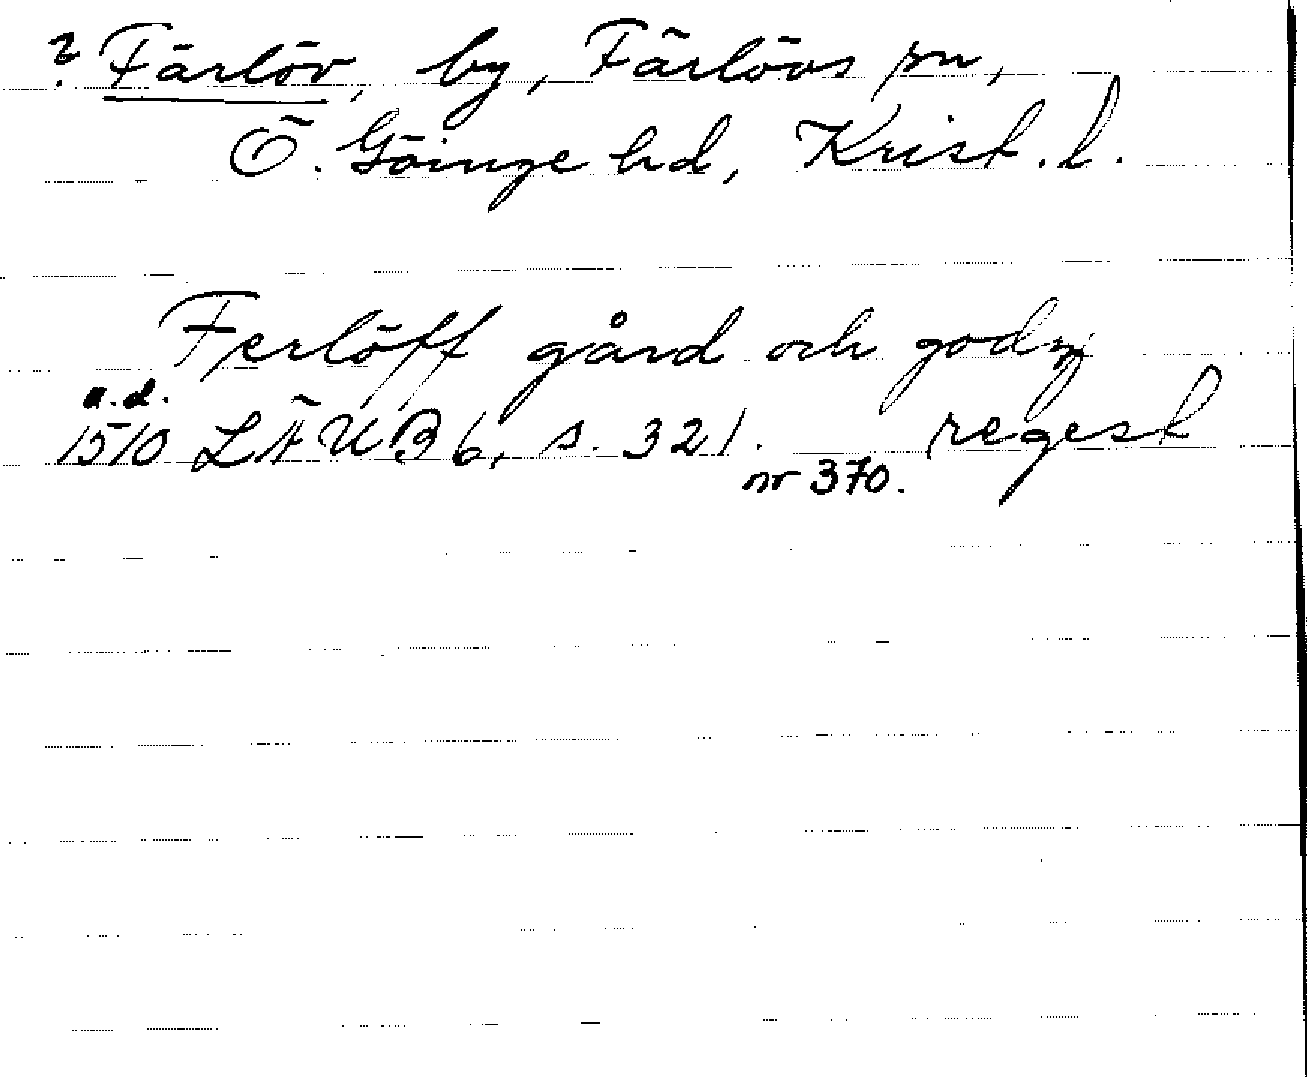 ? Färlöv, by, Färlövs sn,
Ö. Göinge hd, Krist. l.
Ferlöff gård och godz
u.d.
1510 LÄUB 6, s. 321. regest
nr 370.